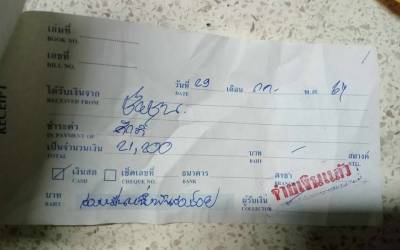 เล่มที่
BOOK NO.
เลขที่
BILL NO.
วันที่ 29 เดือน กค. พ.ศ. 67
DATE
ได้รับเงินจาก
RECEIVED FROM
ชำระค่า
IN PAYMENT OF
เป็นจำนวนเงิน 21,200 บาท - สตางค์
TOTAL BAHT
RECEIPT
☑ เงินสด ☐ เช็คเลขที่ ธนาคาร สาขา
CASH CHEQUE NO.
จ่ายเงินแล้ว
บาท สองหมื่นหนึ่งพันสองร้อย ผู้รับเงิน
BAHT COLLECTOR